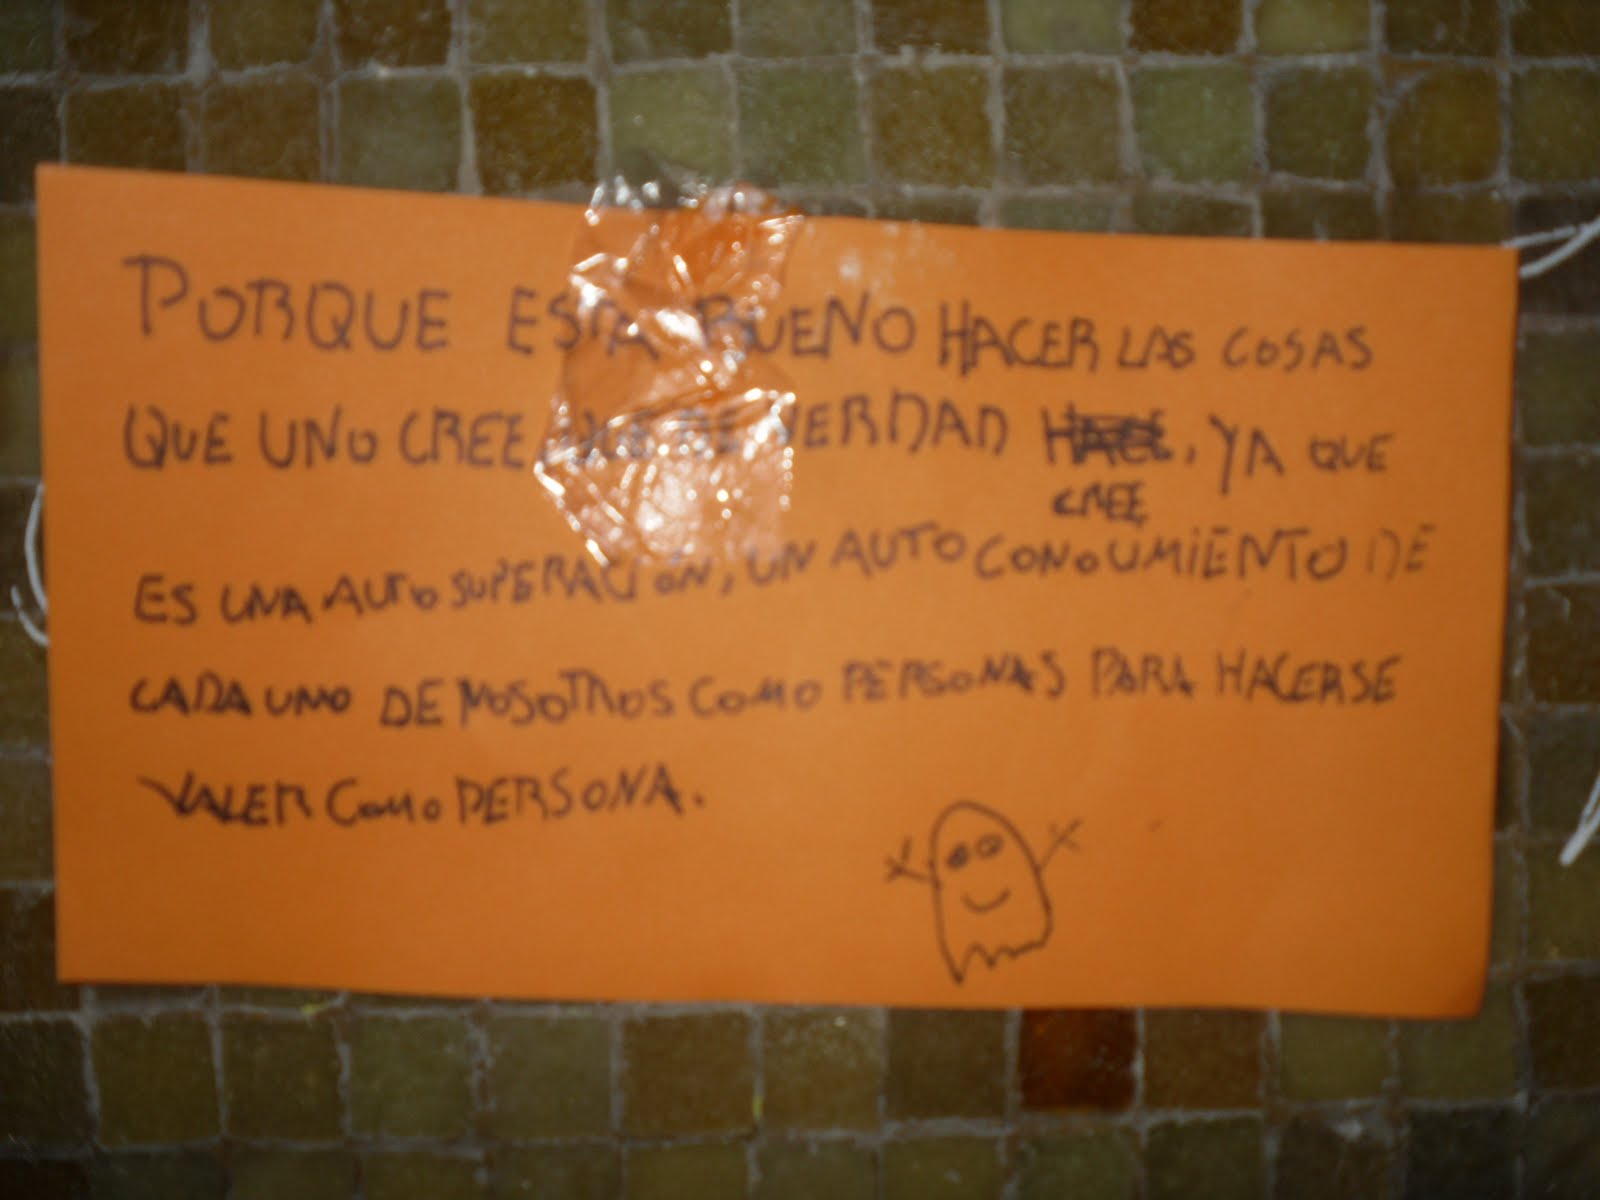 PORQUE ESTA BUENO HACER LAS COSAS
QUE UNO CREE QUE DE VERDAD, YA QUE
CREE
ES UNA AUTO SUPERACIÓN, UN AUTO CONOCIMIENTO DE
CADA UNO DE NOSOTROS COMO PERSONAS PARA HACERSE
VALER COMO PERSONA.